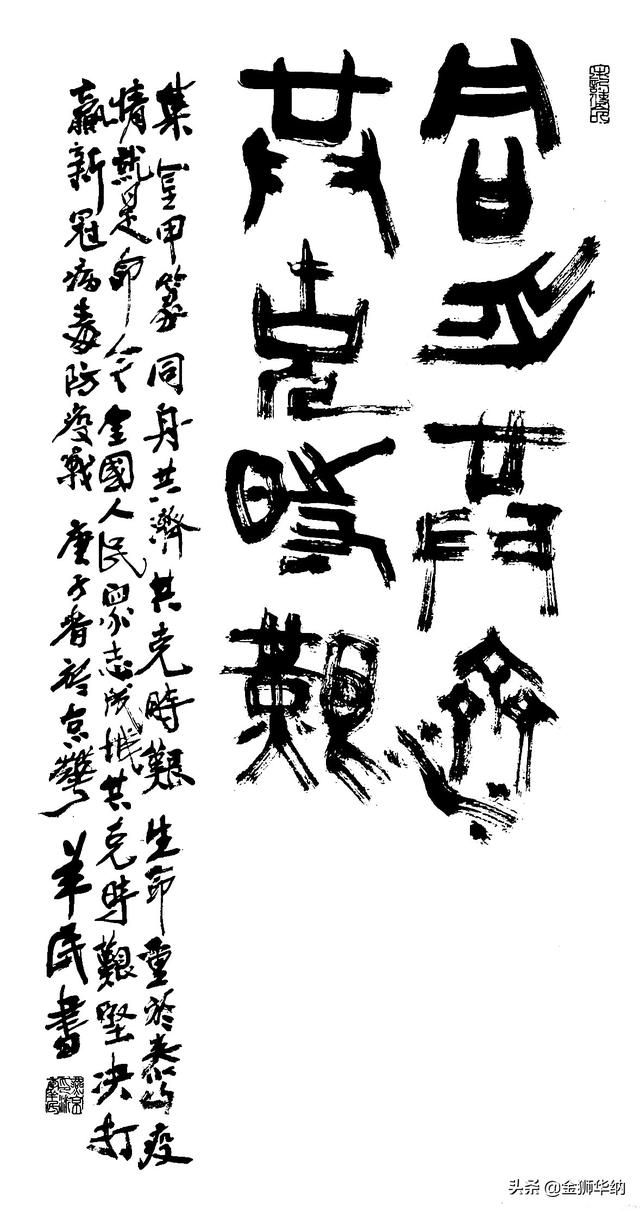 同身共濟
共克時艱
集金甲篆同身共濟共克時艱生命重於泰山疫
情就是命令全國人民眾志成城共克時艱堅決打
贏新冠病毒防疫戰 庚子春於京華 羊民書
头条 @金狮华纳